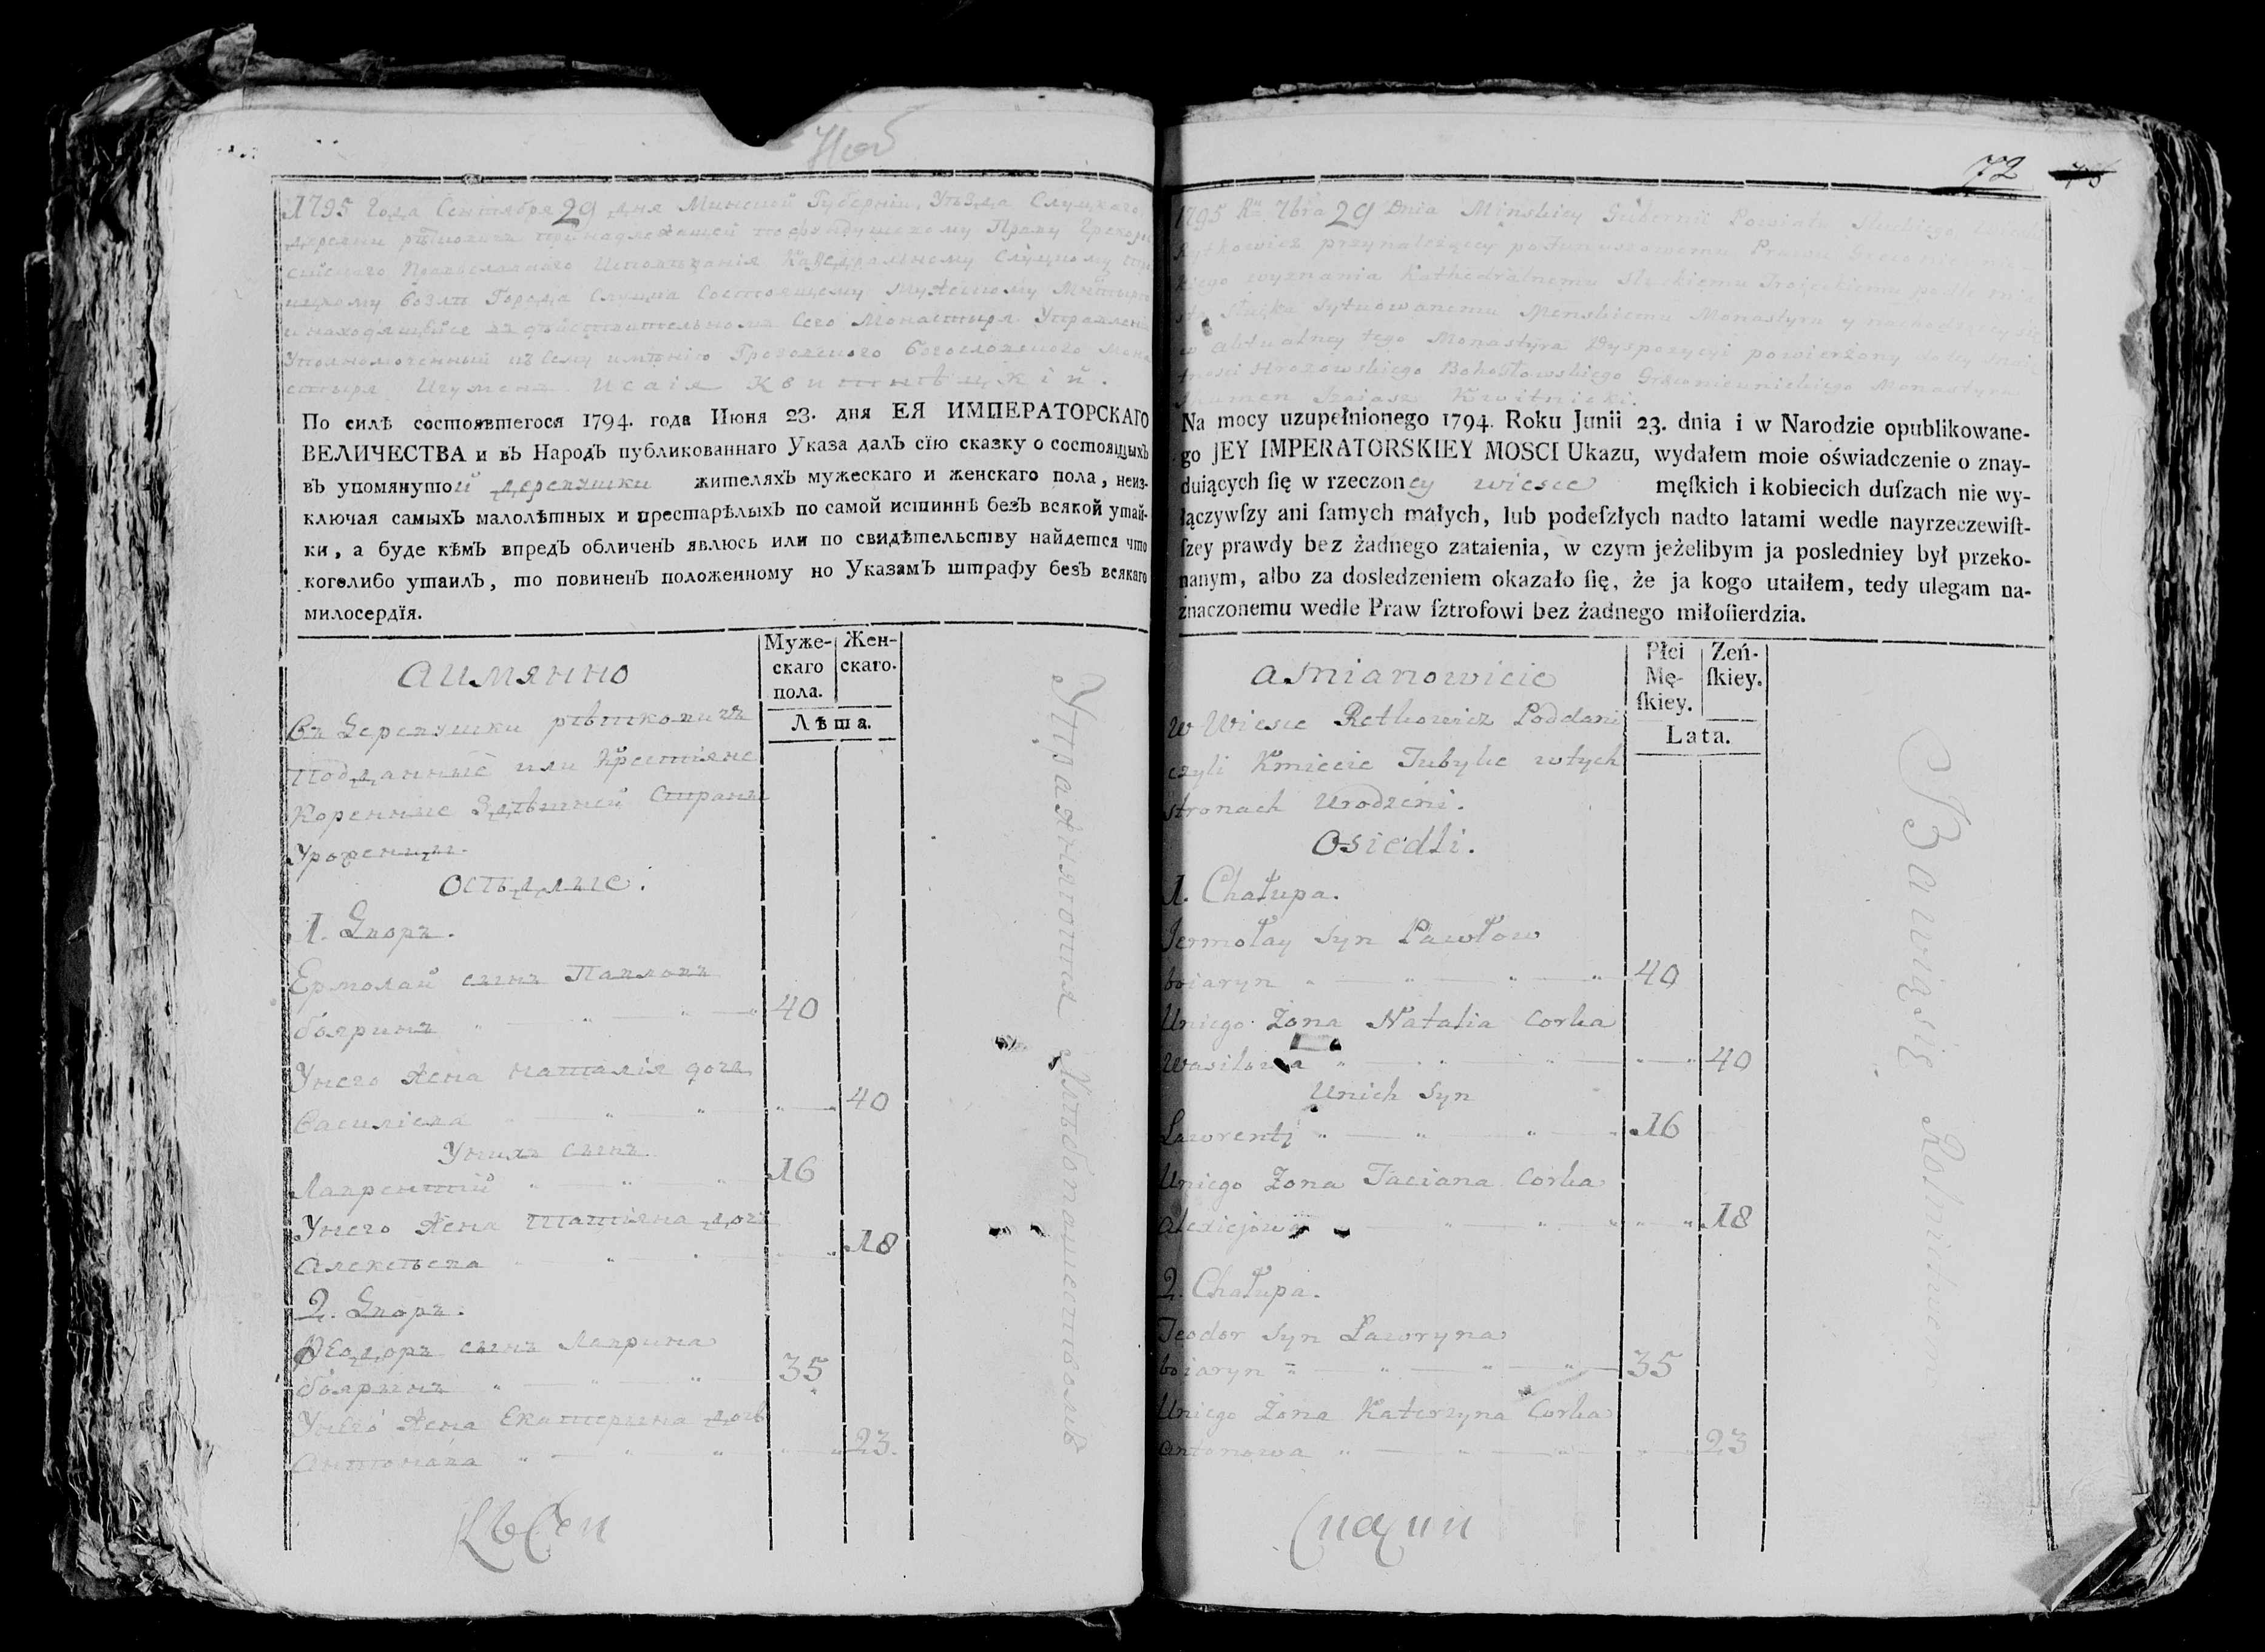 1795 Года Сентября 29 дня Минской Губерніи, Уѣзда Слуцкаго
деревни принадлежащей по фундушевому Праву Грекорос
сійскаго Православнаго Исповѣданія Каѳедральному Слуцкому Тро
ицкому возлѣ Города Слуцка Состоящему Мужескому Монастырю
и находящейся въ дѣйствительномъ Сего Монастыря Управленіи
Уполномоченный къ Сему имѣнію Грозовского Богословского Мона
стыря Игуменъ Исаія Квитнѣцкій.
По силѣ состоявшегося 1794. года Июня 23. дня ЕЯ ИМПЕРАТОРСКАГО
ВЕЛИЧЕСТВА и въ Народъ публикованнаго Указа далъ сїю сказку о состоящыхъ
въ упомянутой деревушки жителяхъ мужескаго и женскаго пола, неиз-
ключая самыхъ малолѣтныхъ и престарѣлыхъ по самой истиннѣ безъ всякой утай-
ки, а буде кѣмъ впредъ обличенъ явлюсь или по свидѣтельству найдется что
коголибо утаилъ, то повиненъ положенному по Указамъ штрафу безъ всякаго
милосердїя.
Муже-
скаго
пола.
Жен-
скаго.
Лѣта.
аимянно
Въ Деревушки рѣтковичъ
Подданные или Крестіяне
Коренные Здѣшней Страны
Уроженцы.
Осѣдлые.
1. Дворъ.
Ермолай сынъ Павловъ
бояринъ 40
Унего жена Наталія дочь
Василіева 40
Унихъ сынъ
Лаврентій 16
Унего жена Татіяна дочь
Алексѣева 18
2. Дворъ.
Ѳеодоръ сынъ Лаврина
бояринъ 35
Унего жена Екатерина дочь
Антонова 23.
Упражняются хлѣбопашествомъ
72
1795 Rku 7bra 29 Dnia Minskiey Gubernii Powiatu Słuckiego, wioski
Rytkowicz przynależącey po Funduszowemu Prawu Greconieunic
kiego wyznania Kathedralnemu Słuckiemu Troieckiemu podle mia
sta Słucka Sytuowanemu Menskiemu Monastyru y nachodzącey się
w aktualney tego Monastyra Dyspozycyi powierzony do tey maię
tności Hrozowskiego Bohosłowskiego Greconieunickiego Monastyra
Ihumen Izaiasz Kwitnicki.
Na mocy uzupełnionego 1794. Roku Junii 23. dnia i w Narodzie opublikowane-
go JEY IMPERATORSKIEY MOSCI Ukazu, wydałem moie oświadczenie o znay-
duiących ſię w rzeczoney wiesce męſkich i kobiecich duſzach nie wy-
łączywſzy ani ſamych małych, lub podeſzłych nadto latami wedle nayrzeczewiſt-
ſzey prawdy bez żadnego zataienia, w czym jeżelibym ja posledniey był przeko-
nanym, albo za dosledzeniem okazało ſię, że ja kogo utaiłem, tedy ulegam na-
znaczonemu wedle Praw ſztrofowi bez żadnego miłoſierdzia.
Płci
Mę-
ſkiey.
Zeń-
ſkiey.
Lata.
amianowicie
w Wiesce Retkowicz Poddani
czyli Kmiecie Tubylce wtych
stronach Urodzeni.
Osiedli.
1. Chałupa.
Jermołay syn Pawłow
boiaryn 40
Uniego Zona Natalia Corka
Wasilowa 40
Unich Syn
Lawrenty 16
Uniego Zona Taciana Corka
Alexiejowa 18
2. Chałupa.
Teodor Syn Lawryna
boiaryn 35
Uniego Zona Katerzyna Corka
Antonowa 23
Bawią się Rolnictwem